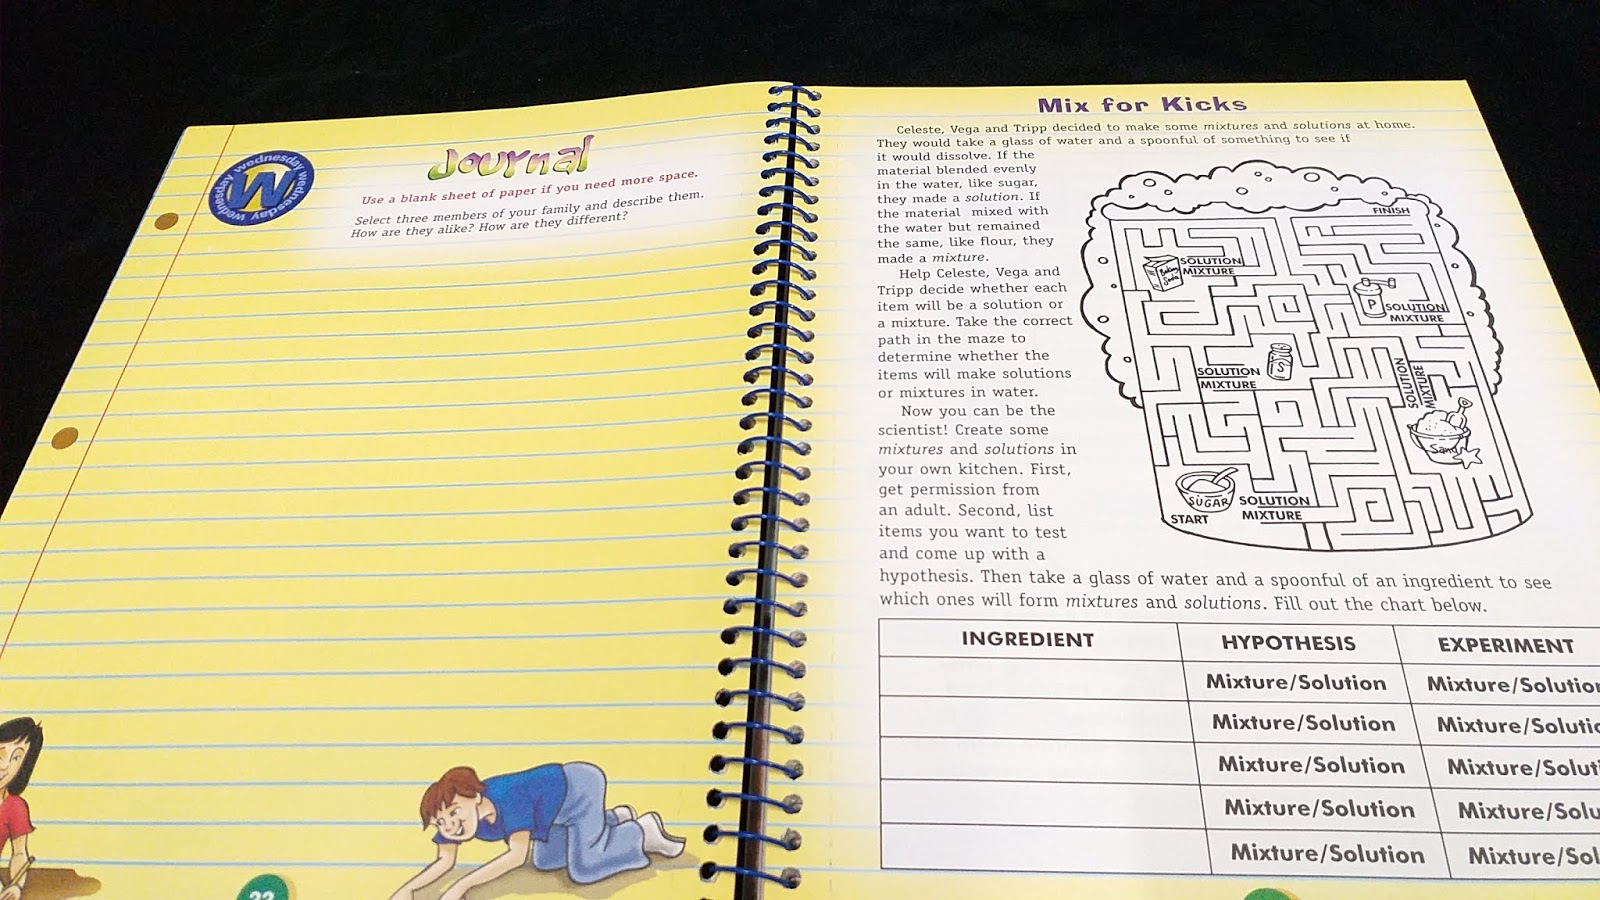 wednesday wednesday wednesday
W
Journal
Use a blank sheet of paper if you need more space.
Select three members of your family and describe them.
How are they alike? How are they different?
Mix for Kicks
Celeste, Vega and Tripp decided to make some mixtures and solutions at home.
They would take a glass of water and a spoonful of something to see if
it would dissolve. If the
material blended evenly
in the water, like sugar,
they made a solution. If
the material mixed with
the water but remained
the same, like flour, they
made a mixture.
Help Celeste, Vega and
Tripp decide whether each
item will be a solution or
a mixture. Take the correct
path in the maze to
determine whether the
items will make solutions
or mixtures in water.
Now you can be the
scientist! Create some
mixtures and solutions in
your own kitchen. First,
get permission from
an adult. Second, list
items you want to test
and come up with a
hypothesis. Then take a glass of water and a spoonful of an ingredient to see
which ones will form mixtures and solutions. Fill out the chart below.
FINISH
Baking
Soda
SOLUTION
MIXTURE
P
SOLUTION
MIXTURE
S
SOLUTION
MIXTURE
SOLUTION
MIXTURE
Sand
SUGAR
SOLUTION
MIXTURE
START
INGREDIENT HYPOTHESIS EXPERIMENT
Mixture/Solution Mixture/Solution
Mixture/Solution Mixture/Solutio
Mixture/Solution Mixture/Solut
Mixture/Solution Mixture/Solu
Mixture/Solution Mixture/Sol